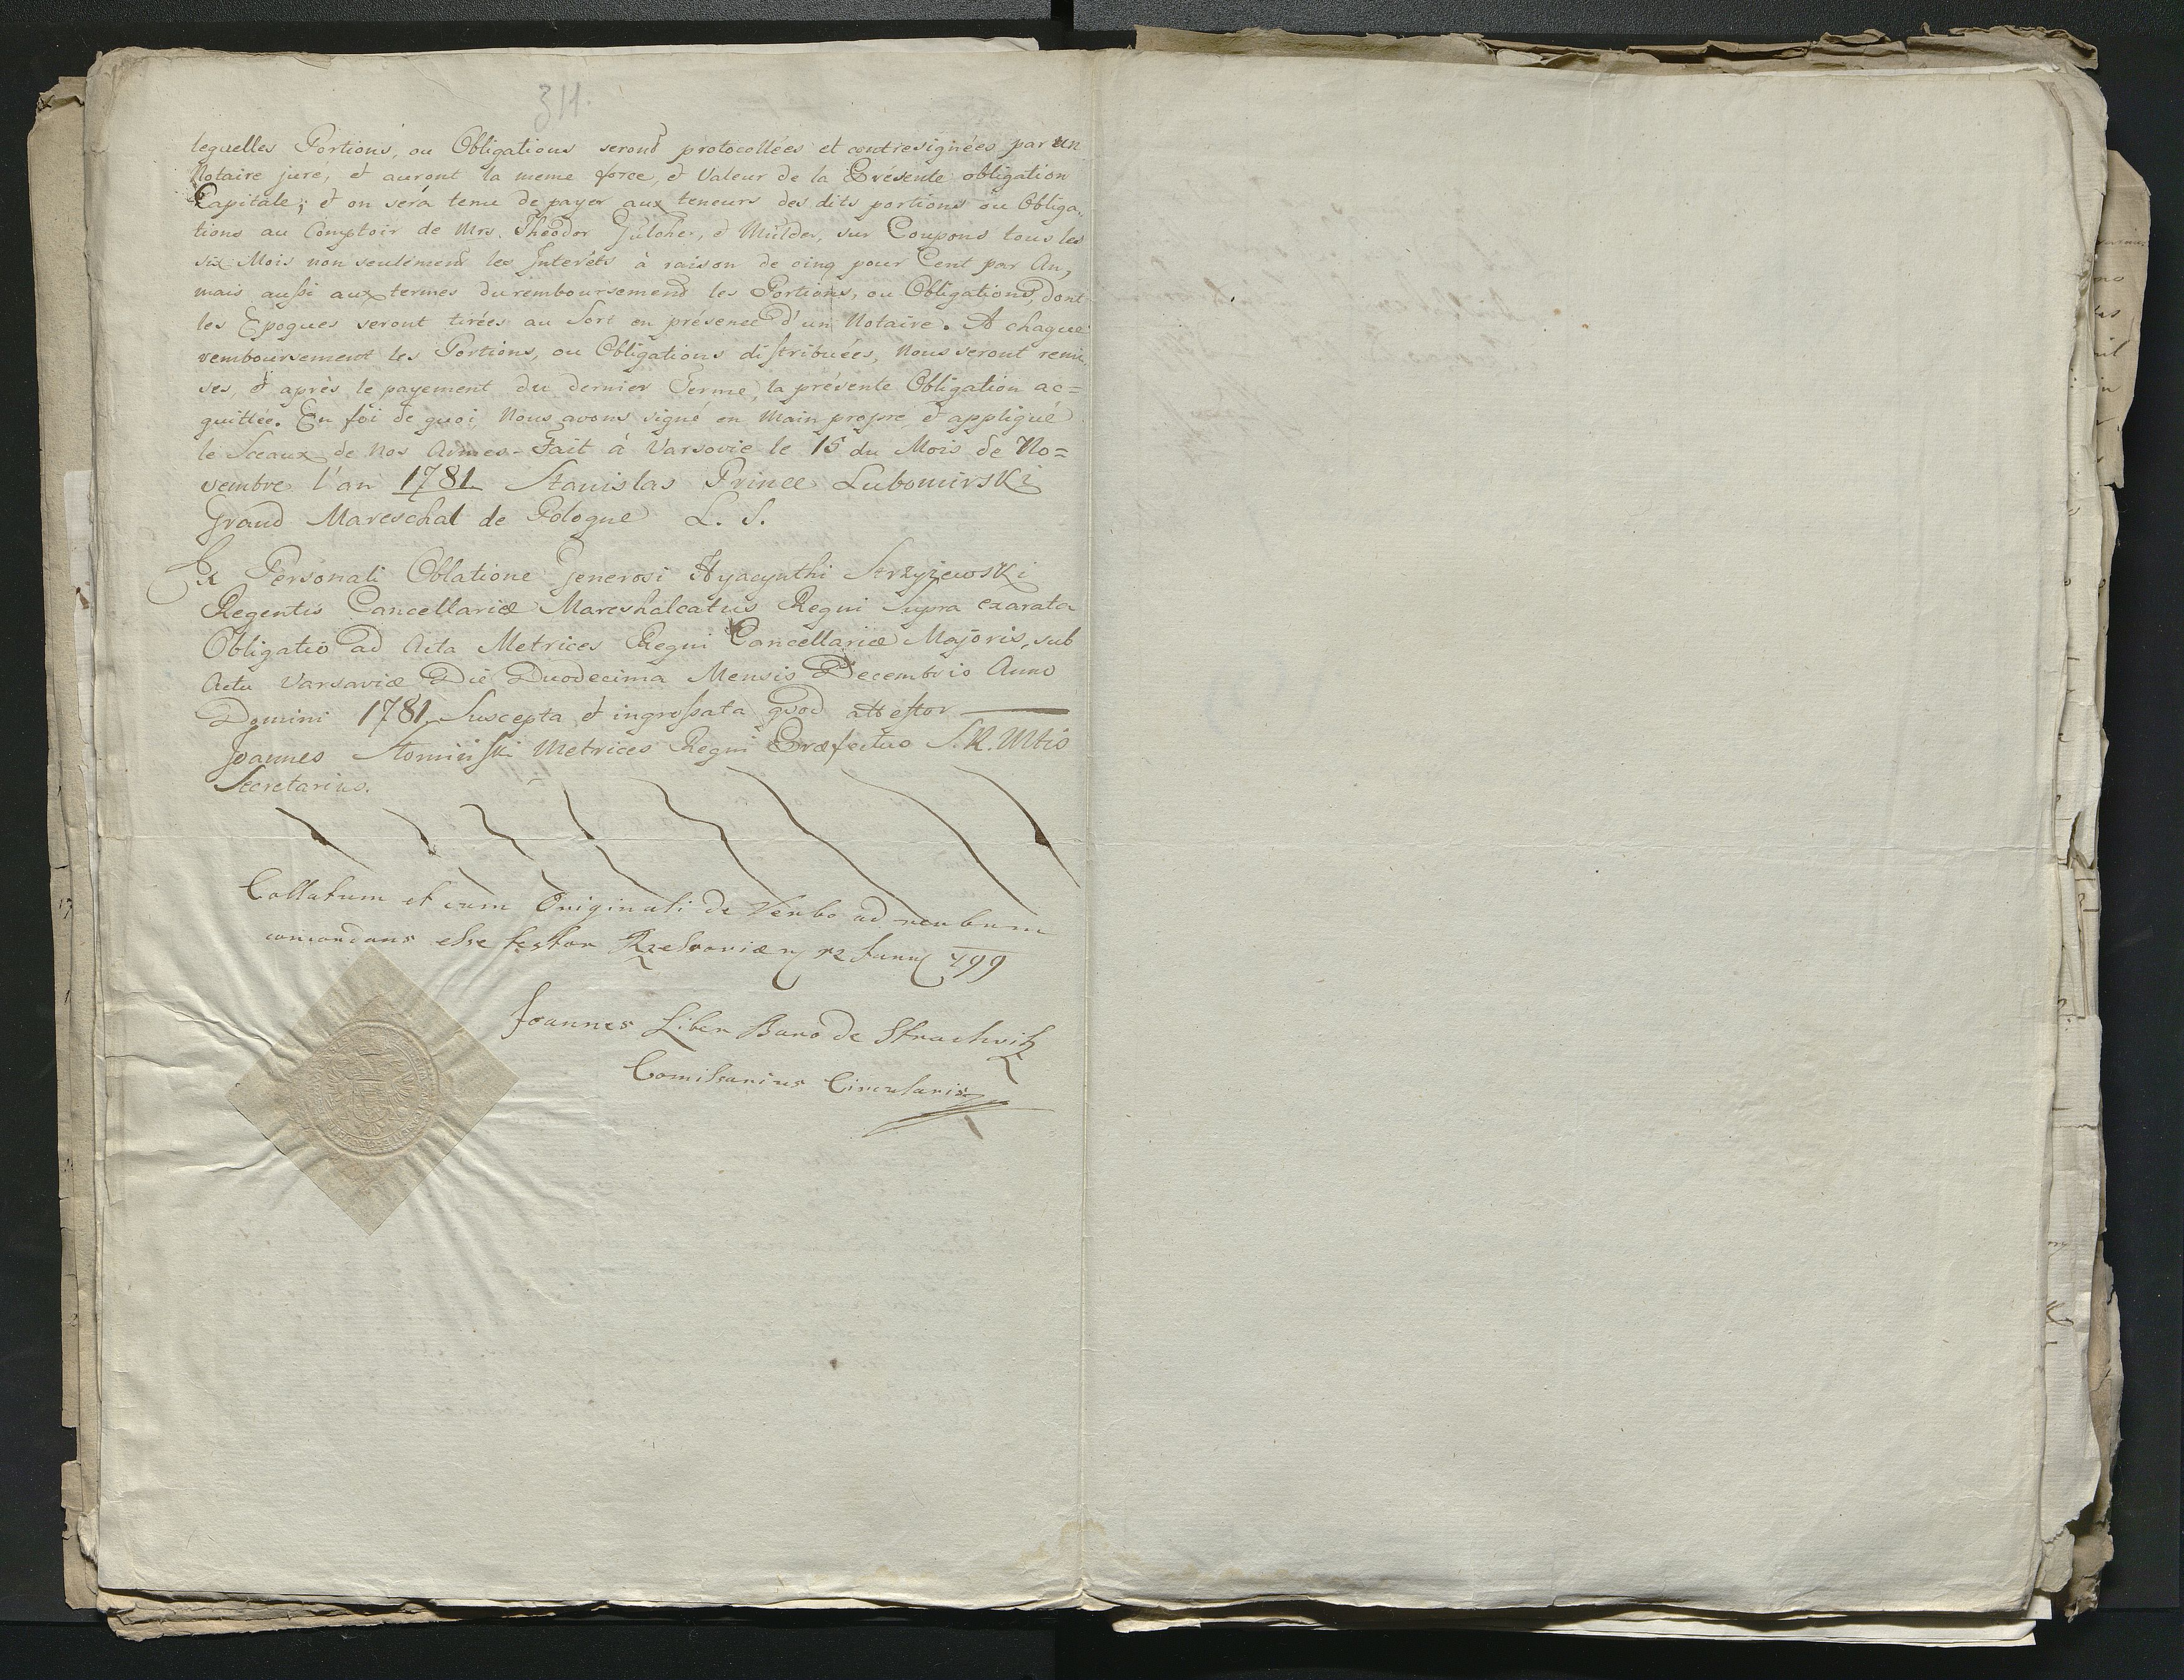 311.
lequelles Portions, ou Obligations seront protocollées et contresignées par un
Notaire juré, et auront la meme force, et Valeur de la Présente obligation
Capitale; et on sera tenu de payer aux teneurs des dits portions ou Obliga-
tions au Comptoir de Mrs. Théodor Gülcher, et Mülder, sur Coupons tous les
six Mois non seulement les Interéts à raison de cinq pour Cent par An,
mais aussi aux termes du remboursement les Portions, ou Obligations, dont
les Epoques seront tirées au Sort en présence d'un Notaire. A chaque
remboursement les Portions, ou Obligations distribuées, Nous seront remi-
ses, et après le payement du dernier Terme, la présente Obligation ac=
quittée. En foi de quoi, Nous avons signé en Main propre, et appliqué
le Sceaux de Nos Armes - Fait à Varsovie le 15 du Mois de No=
vembre l'an 1781 Stanislas Prince Lubomirski
Grand Mareschal de Pologne L. S.
Ex Personali Oblatione Generosi Hyacynthi Strzyżewski
Regentis Cancellariæ Mareshalcatus Regni Supra exarata
Obligatio ad Acta Metrices Regni Cancellariæ Majoris, sub
Actu Varsaviæ Die Duodecima Mensis Decembris Anno
Domini 1781 Suscepta, et ingrossata quod attestor
Joannes Słomiński Metrices Regni Præfectus S. R. Mtis
Secretarius.
Collatum et cum Originali de Verbo ad verbum
concordans esse testor Rzeszoviæ 12 Juny 799
Joannes Liber Baro de Strachwitz
Comissarius Circularis